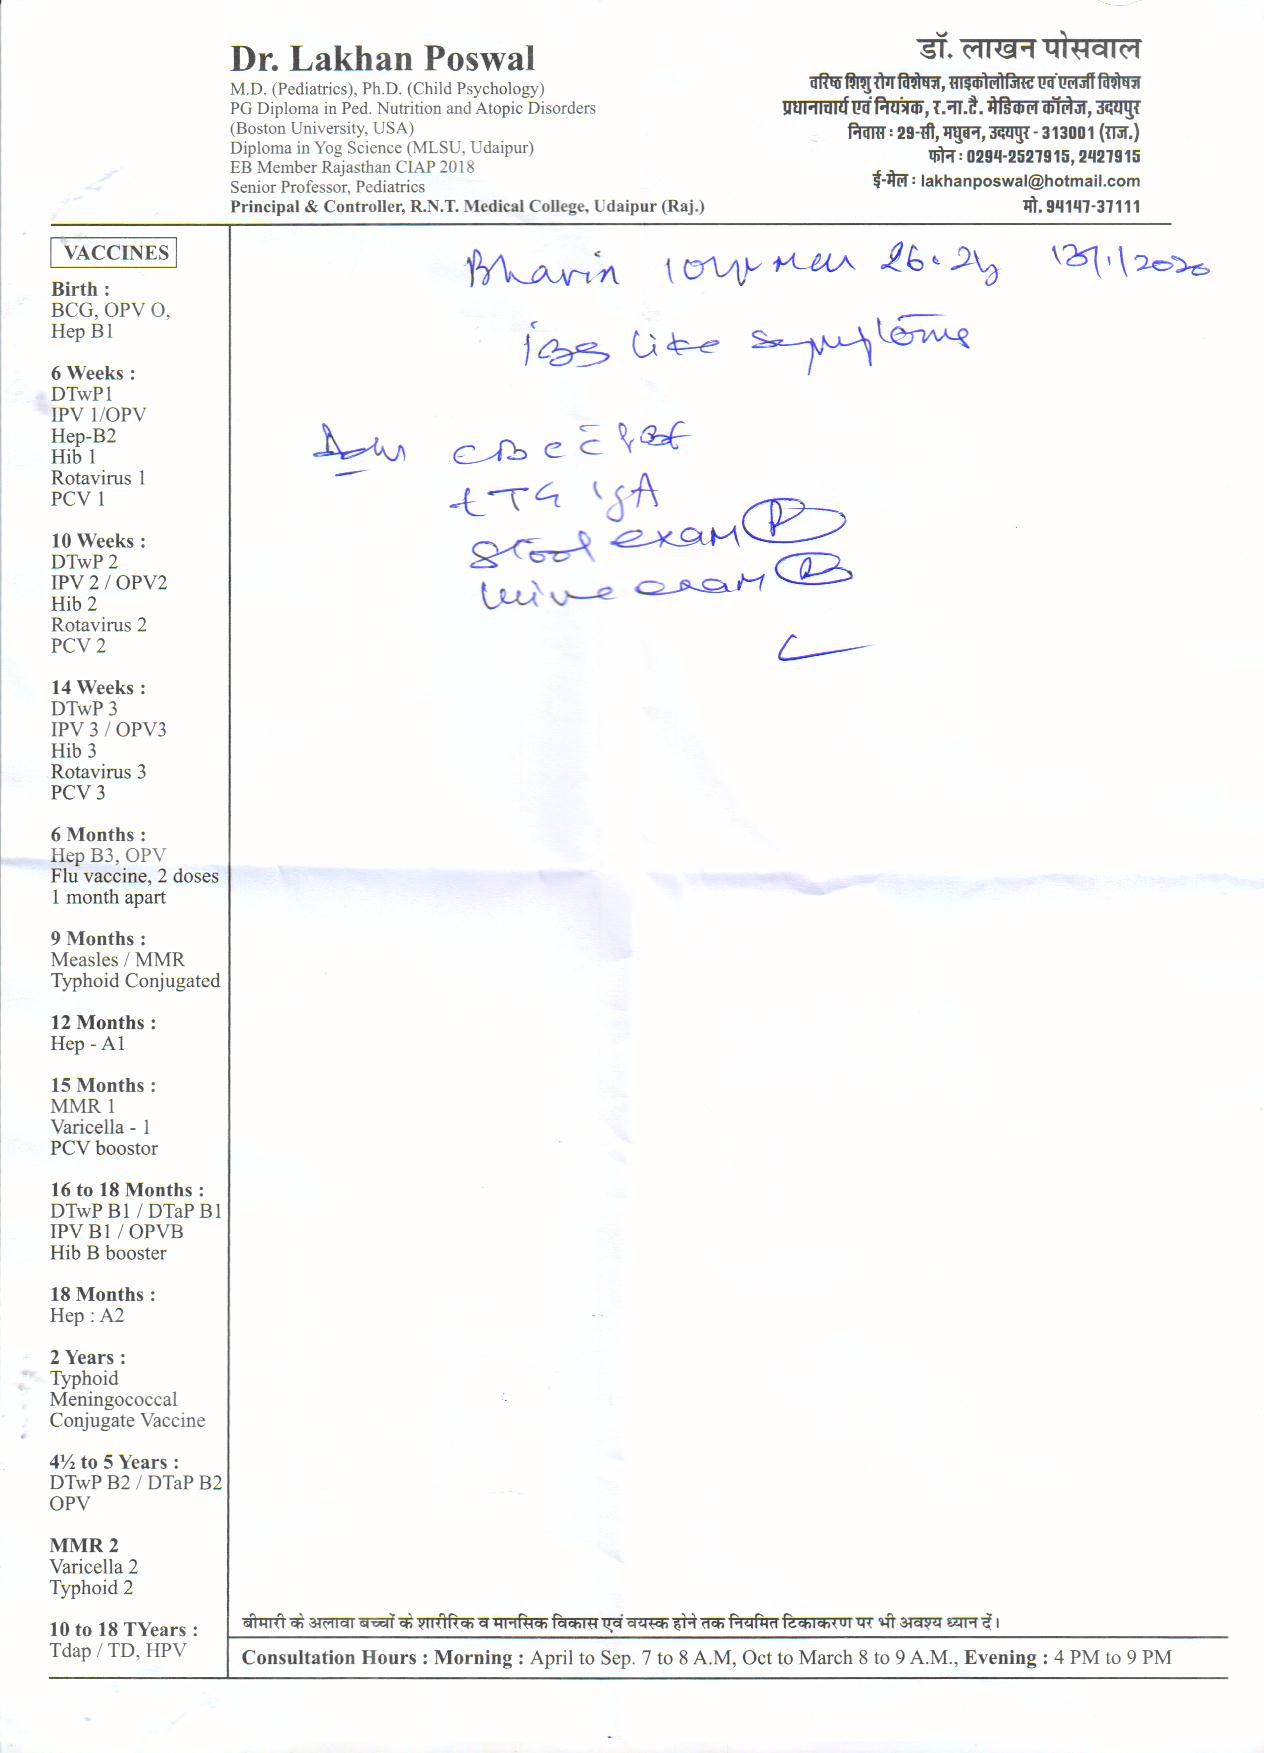 Dr. Lakhan Poswal
M.D. (Pediatrics), Ph.D. (Child Psychology)
PG Diploma in Ped. Nutrition and Atopic Disorders
(Boston University, USA)
Diploma in Yog Science (MLSU, Udaipur)
EB Member Rajasthan CIAP 2018
Senior Professor, Pediatrics
Principal & Controller, R.N.T. Medical College, Udaipur (Raj.)
डॉ. लाखन पोसवाल
वरिष्ठ शिशु रोग विशेषज्ञ, साइकोलोजिस्ट एवं एलर्जी विशेषज्ञ
प्रधानाचार्य एवं नियंत्रक, र.ना.टै. मेडिकल कॉलेज, उदयपुर
निवास : 29-सी, मधुबन, उदयपुर - 313001 (राज.)
फोन : 0294-2527915, 2427915
ई-मेल : lakhanposwal@hotmail.com
मो. 94147-37111
VACCINES
Birth :
BCG, OPV O,
Hep B1
6 Weeks :
DTwP1
IPV 1/OPV
Hep-B2
Hib 1
Rotavirus 1
PCV 1
10 Weeks :
DTwP 2
IPV 2 / OPV2
Hib 2
Rotavirus 2
PCV 2
14 Weeks :
DTwP 3
IPV 3 / OPV3
Hib 3
Rotavirus 3
PCV 3
6 Months :
Hep B3, OPV
Flu vaccine, 2 doses
1 month apart
9 Months :
Measles / MMR
Typhoid Conjugated
12 Months :
Hep - A1
15 Months :
MMR 1
Varicella - 1
PCV boostor
16 to 18 Months :
DTwP B1 / DTaP B1
IPV B1 / OPVB
Hib B booster
18 Months :
Hep : A2
2 Years :
Typhoid
Meningococcal
Conjugate Vaccine
4½ to 5 Years :
DTwP B2 / DTaP B2
OPV
MMR 2
Varicella 2
Typhoid 2
10 to 18 TYears :
Tdap / TD, HPV
Bhavin 10yr 26.2 13/1/2020
IBS like symptoms
CBC c PBF
tTG IgA
Stool exam R
Urine exam R
बीमारी के अलावा बच्चों के शारीरिक व मानसिक विकास एवं वयस्क होने तक नियमित टिकाकरण पर भी अवश्य ध्यान दें।
Consultation Hours : Morning : April to Sep. 7 to 8 A.M, Oct to March 8 to 9 A.M., Evening : 4 PM to 9 PM